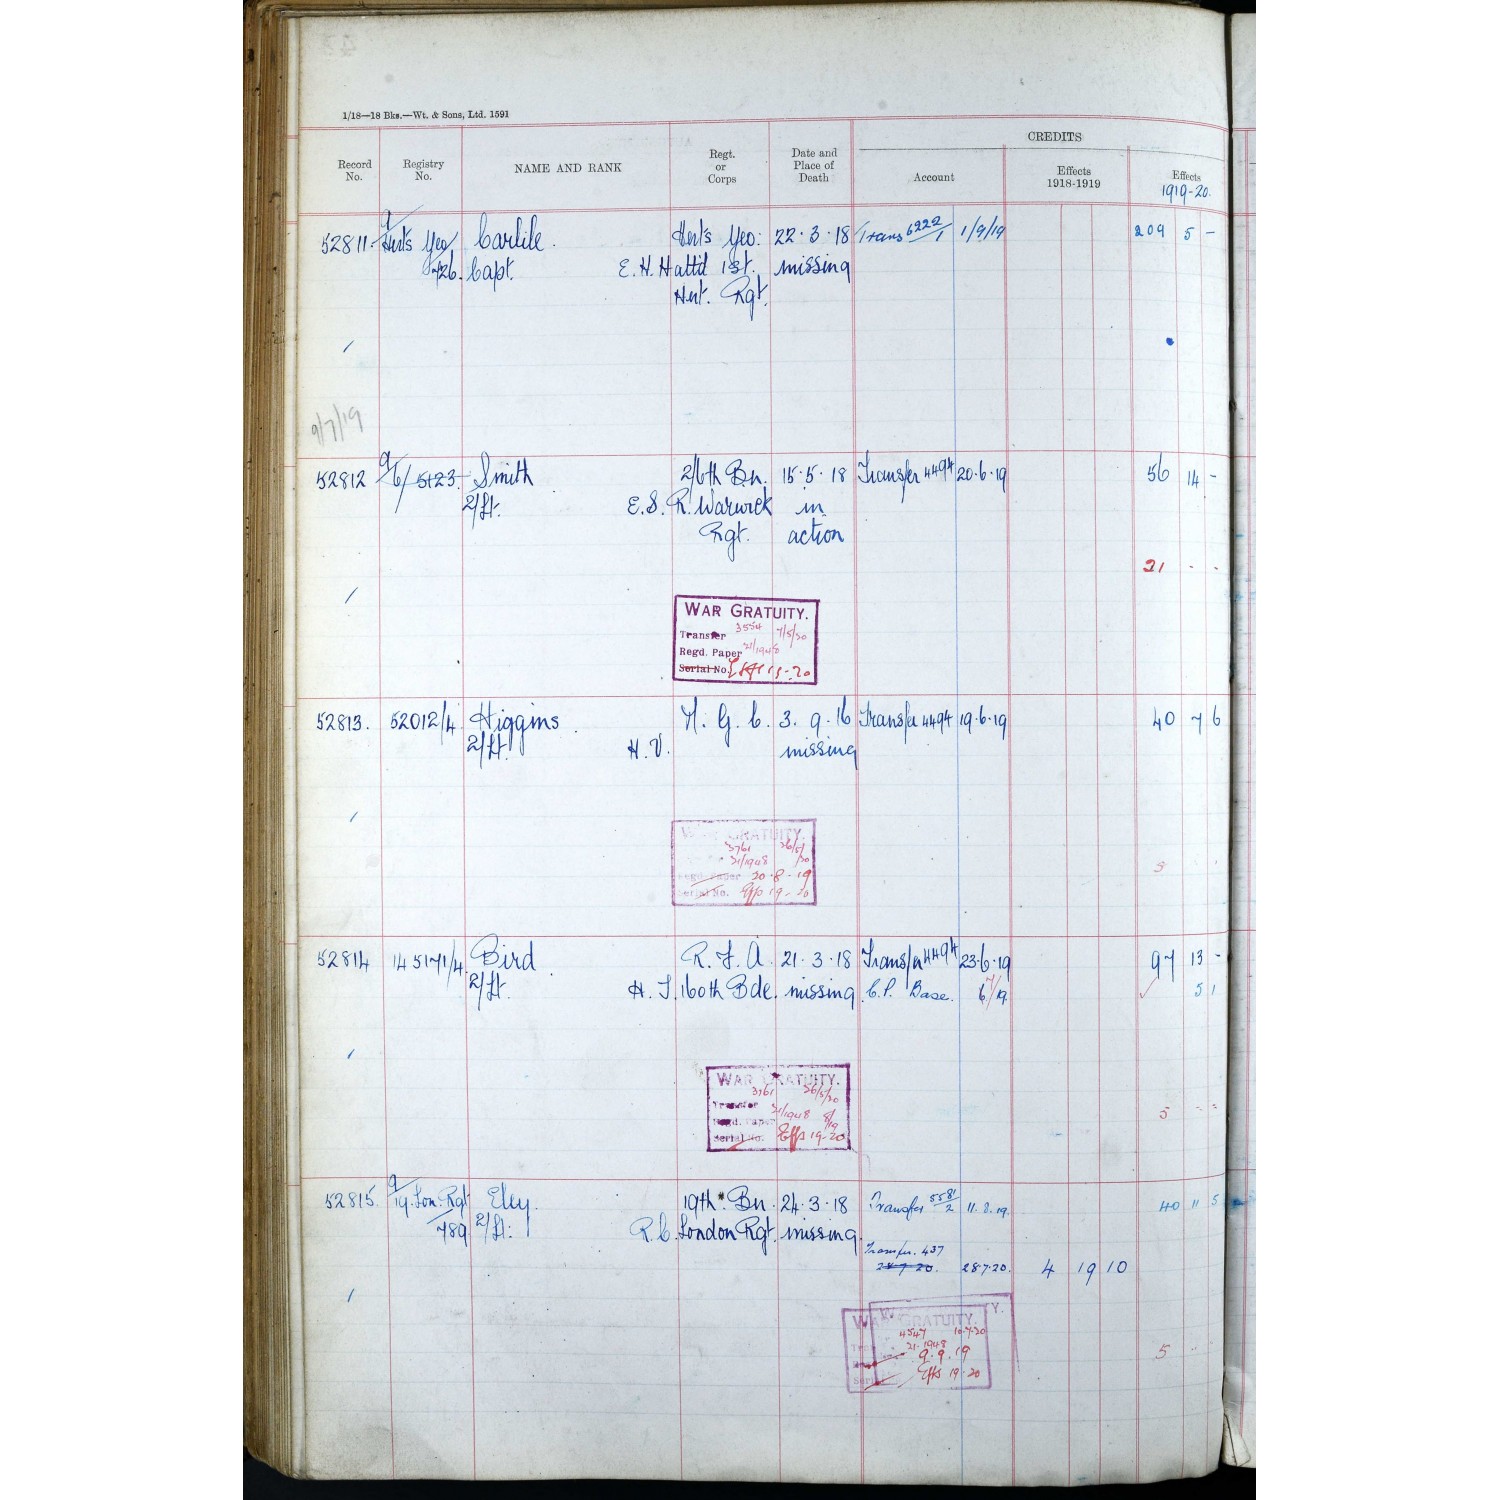 1/18—18 Bks.—Wt. & Sons, Ltd. 1591
CREDITS
Record No.
Registry No.
NAME AND RANK
Regt. or Corps
Date and Place of Death
Account
Effects 1918-1919
Effects 1919-20.
52811 9/Herts Yeo/ Carlile. Herts Yeo: 22.3.18 Trans 6222/1 1/9/19 209 5 -
726. Capt. E. H. Hattd 1st. missing
Hert. Rgt.
9/7/19
52812 9/6/5123 Smith 2/6th Bn. 15.5.18 Transfer 4494 20.6.19 56 14 -
2/Lt. E.S. R. Warwick in
Rgt. action
21 - -
WAR GRATUITY.
Transfer 3554 7/5/20
Regd. Paper 21/1948
Serial No. 19-20
52813. 52012/4 Higgins M. G. C. 3.9.16 Transfer 4494 19.6.19 40 7 6
2/Lt. H.V. missing
WAR GRATUITY.
3761 26/5/20
21/1948
Regd. Paper 20-8-19
Serial No. Effs 19-20
5
52814 145171/4 Bird R. F. A. 21.3.18 Transfer 4494 23.6.19 97 13 -
2/Lt. H. J. 160th Bde. missing C.P. Base. 6/19 5 1
WAR GRATUITY.
3761 26/5/20
Transfer 21/1948
Regd. Paper 8/19
Serial No. Effs 19-20
5 - -
52815 9/19 Lon. Rgt Eley. 19th Bn. 24.3.18 Transfer 5581/2 11.8.19. 40 11 5
789 2/Lt. R.C. London Rgt. missing
Transfer. 437
28 7 20. 28.7.20. 4 19 10
WAR GRATUITY.
4547 10.7.20
21.1948
9.9.19
Effs 19-20
5